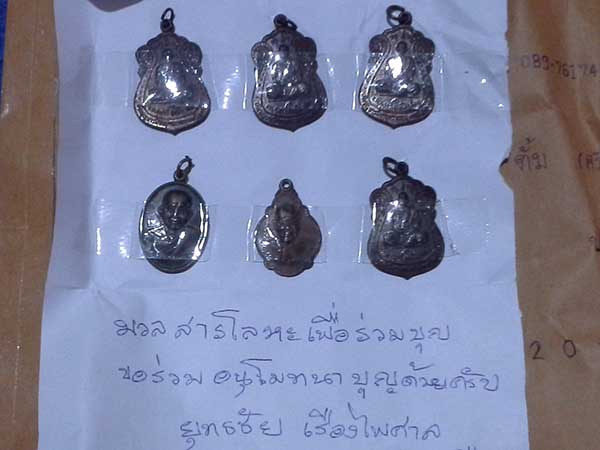 089-76174
ตั้ม
มวลสารโลหะเพื่อร่วมบุญ
ขอร่วม อนุโมทนา บุญด้วยครับ
ยุทธชัย เรืองไพศาล
20